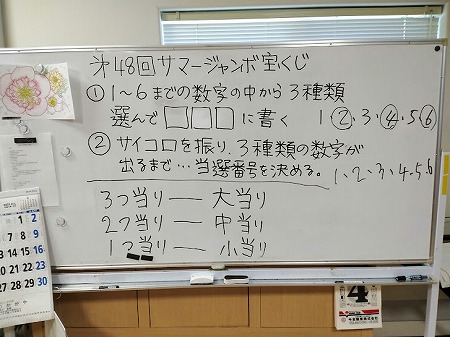 第48回サマージャンボ宝くじ
① 1～6までの数字の中から3種類
選んで□□□に書く 1②・3・④・5⑥
② サイコロを振り、3種類の数字が
出るまで…当選番号を決める。
1・2・3・4・5・6
3つ当り―大当り
2つ当り―中当り
1つ当り―小当り
1 2
7 8 9
13 14 15 16
20 21 22 23
27 28 29 30
4